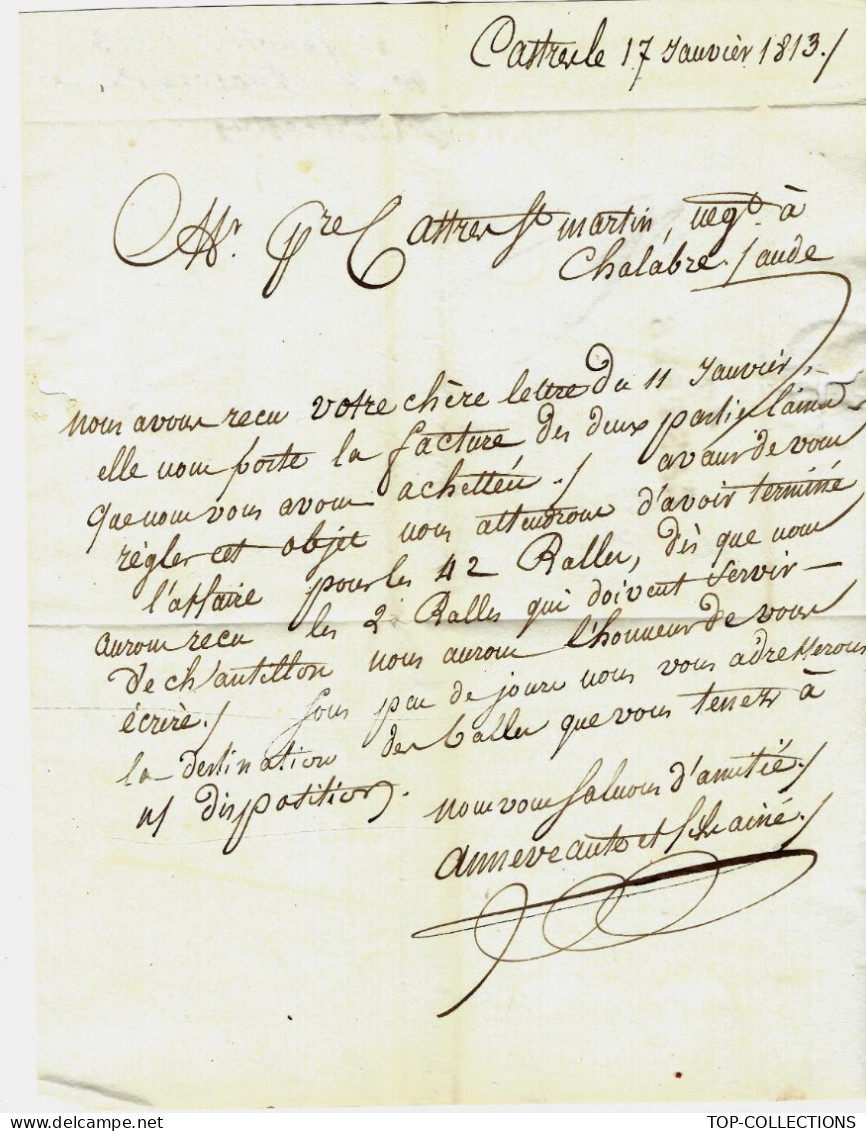 Castres le 17 Janvier 1813./
Mr. Pre Cattres St martin, negt. à
Chalabre. / aude
nous avons recu votre chère lettre du 11 Janvier,
elle nous porte la facture des deux parties laines
que nous vous avons achettées./ avant de vous
règler cet objet nous attendrons d'avoir terminé
l'affaire pour les 42 Balles, dès que nous
aurons recu les 2 Balles qui doivent servir
d'echantillon nous aurons l'honneur de vous
écrire./ sous peu de jours nous vous adresserons
la destination des balles que vous tenez à
n/ disposition.
nous vous saluons d'amitié./
et fils ainé./
TOP-COLLECTIONS